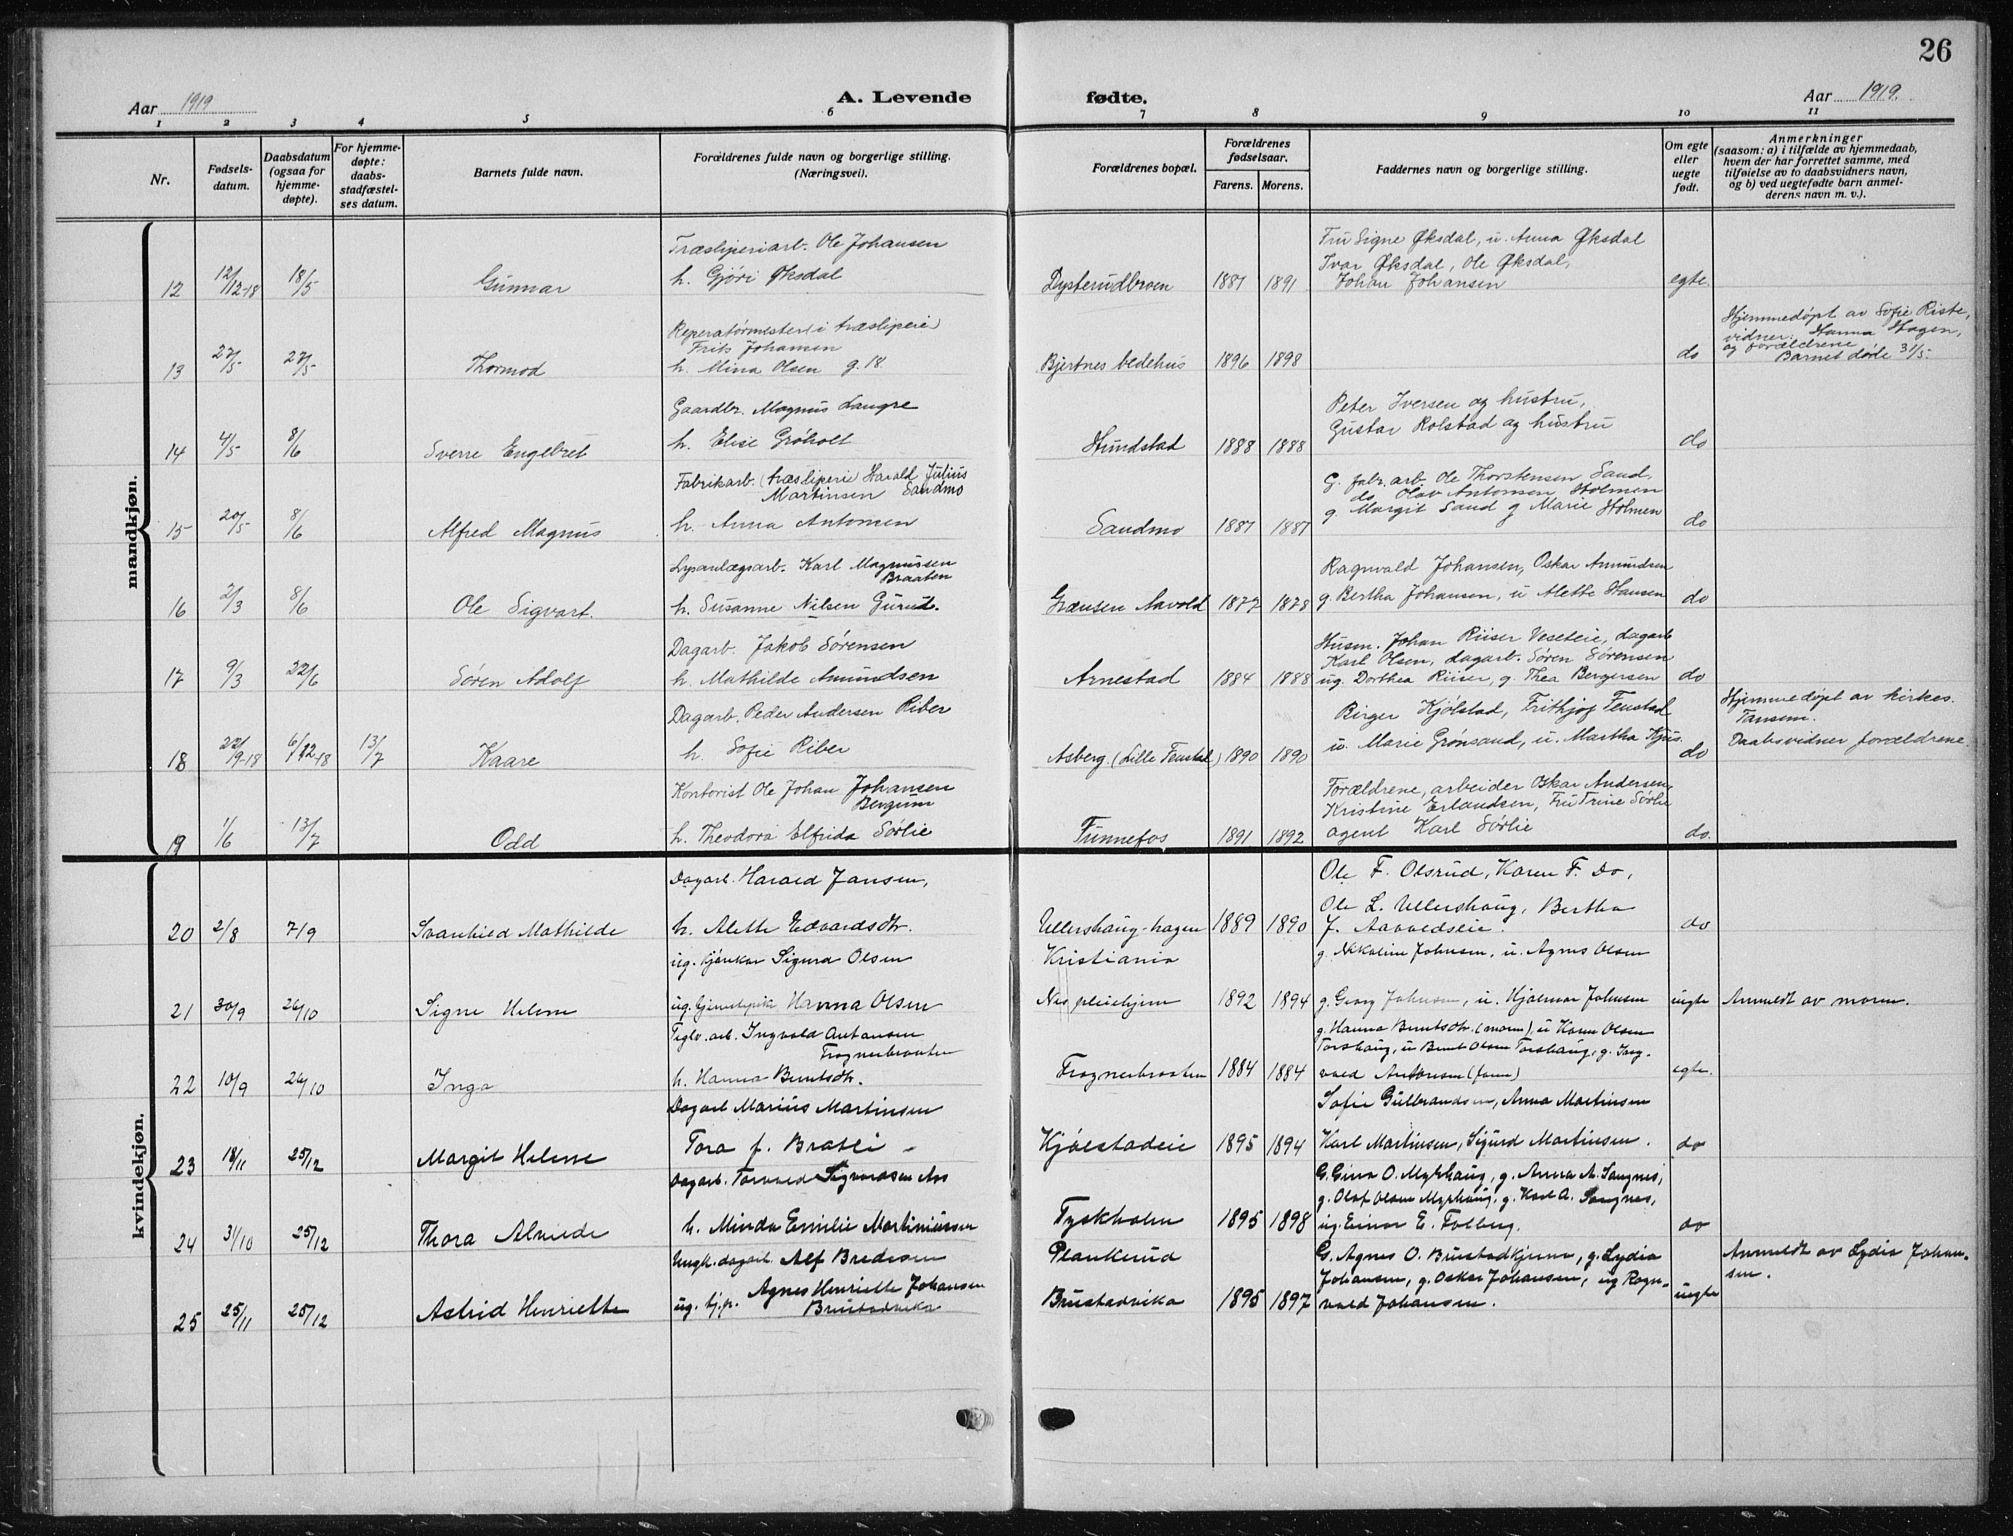 26
Aar 1919
A. Levende
fødte.
Aar 1919.
1 2 3 4 5 6 7 8 9 10 11
Nr.
Fødsels-
datum.
Daabsdatum
(ogsaa for
hjemme-
døpte).
For hjemme-
døpte:
daabs-
stadfæstel-
ses datum.
Barnets fulde navn.
Forældrenes fulde navn og borgerlige stilling.
(Næringsvei).
Forældrenes bopæl.
Forældrenes
fødselsaar.
Farens. Morens.
Faddernes navn og borgerlige stilling.
Om egte
eller
uegte
født.
Anmerkninger
(saasom: a) i tilfælde av hjemmedaab,
hvem der har forrettet samme, med
tilføielse av to daabsvidners navn,
og b) ved uegtefødte barn anmel-
derens navn m. v.).
mandkjøn.
Træsliperiarb. Ole Johansen
Fru Signe Øksdal, u. Anna Øksdal
Ivar Øksdal, Ole Øksdal,
12 12/12-18 18/5 Gunnar h. Gjøri Øksdal Dysterudbroen 1887 1891 Johan Johansen egte.
Reperatørmester (i træsliperie)
Frits Johansen
Hjemmedøpt av Sofie Riste,
vidner: Hanna Hagen,
og forældrene
13 27/5 27/5 Thormod h. Mina Olsen g. 18. Bjertnes bedehus 1896 1898 do Barnet døde 31/5.
Gaardbr. Magnus Langre
Peter Iversen og hustru,
14 4/5 8/6 Sverre Engebret h. Elise Grøholt Hundstad 1888 1888 Gustav Rolstad og hustru do
Fabrikarb. (træsliperie) Harald Julius
Martinsen Sandmo
G. fabr. arb. Ole Thorstensen Sand,
do Olav Antonsen Holmen
15 20/5 8/6 Alfred Magnus h. Anna Antonsen Sandmo 1887 1887 g. Margit Sand g Marie Holmen do
Lysanlægsarb. Karl Magnussen
Braaten
Ragnvald Johansen, Oskar Amundsen
16 2/3 8/6 Ole Sigvart. h. Susanne Nilsen Gurud. Grænsen Aavold 1877 1878 g. Bertha Johansen, u Alette Hansen do
Dagarb. Jakob Sørensen
Husm. Johan Riiser Veseteie, dagarb
Karl Olsen, dagarb. Søren Sørensen
17 9/3 22/6 Søren Adolf h. Mathilde Amundsen Arnestad 1884 1888 ug. Dorthea Riiser, g. Thea Bergersen do
Dagarb. Peder Andersen Riber
Birger Kjølstad, Frithjof Fenstad
Hjemmedøpt av kirkes.
Tansem.
18 22/9-18 6/12-18 13/7 Kaare h. Sofie Riber Asberg (Lille Fenstad) 1890 1890 u. Marie Grønsand, u. Martha Kjus do Daabsvidner forældrene.
Kontorist Ole Johan Johansen
Bergum
Forældrene, arbeider Oskar Andersen,
Kristine Erlandsen, Fru Trine Sørlie
19 1/6 13/7 Odd h. Theodora Elfrida Sørlie Funnefos 1891 1892 agent Karl Sørlie do.
kvindekjøn.
Dagarb. Harald Jansen,
Ole F. Olsrud, Karen F. Do,
Ole L. Ullershaug, Bertha
20 2/8 7/9 Svanhild Mathilde h. Alette Edvardsdtr. Ullershaug-hagen 1889 1890 J. Aavoldseie. do
ug. Sigurd Olsen Kristiania g. Nikoline Johnsen, u. Agnes Olsen
21 30/9 26/10 Signe Helene ug. Hanna Olsen Nes pleiehjem 1892 1894 g. Georg Johnsen, u. Hjalmar Johnsen uegte Anmeldt av moren.
Teglv. arb. Ingvald Antonsen
Frognerbraaten
g. Hanna Berntsdtr. (moren), u Karen Olsen
Torshaug, u Bernt Olsen Torshaug, g. Ing-
22 10/9 26/10 Inga h. Hanna Berntsdtr. Frognerbraaten 1884 1884 vald Antonsen (faren) egte.
Dagarb Marius Martinsen
Sofie Gulbrandsen, Anna Martinsen
23 18/11 25/12 Margit Helene Tora f. Bratli Kjølstadeie 1895 1894 Karl Martinsen, Sigurd Martinsen. do
Dagarb. Torvald Sigvardsen Aas
G. Gina O. Myrhaug, g. Anna A. Sangnes,
g. Olaf Olsen Myrhaug, g. Karl A. Sangnes,
24 31/10 25/12 Thora Alvilde h. Minda Emilie Martiniussen Tyskholm 1895 1898 ug. Einar E. Folberg. do
Ungk. dagarb. Alf Bredesen
Plankerud
G. Agnes O. Brustadkjerne, g. Lydia
Anmeldt av Lydia Johan-
sen.
Agnes Henriette Johansen
Johansen, g. Oskar Johansen, ug Ragn-
25 25/11 25/12 Astrid Henriette ug. tj.p. Brustadvika Brustadvika 1895 1897 vald Johansen. uegte